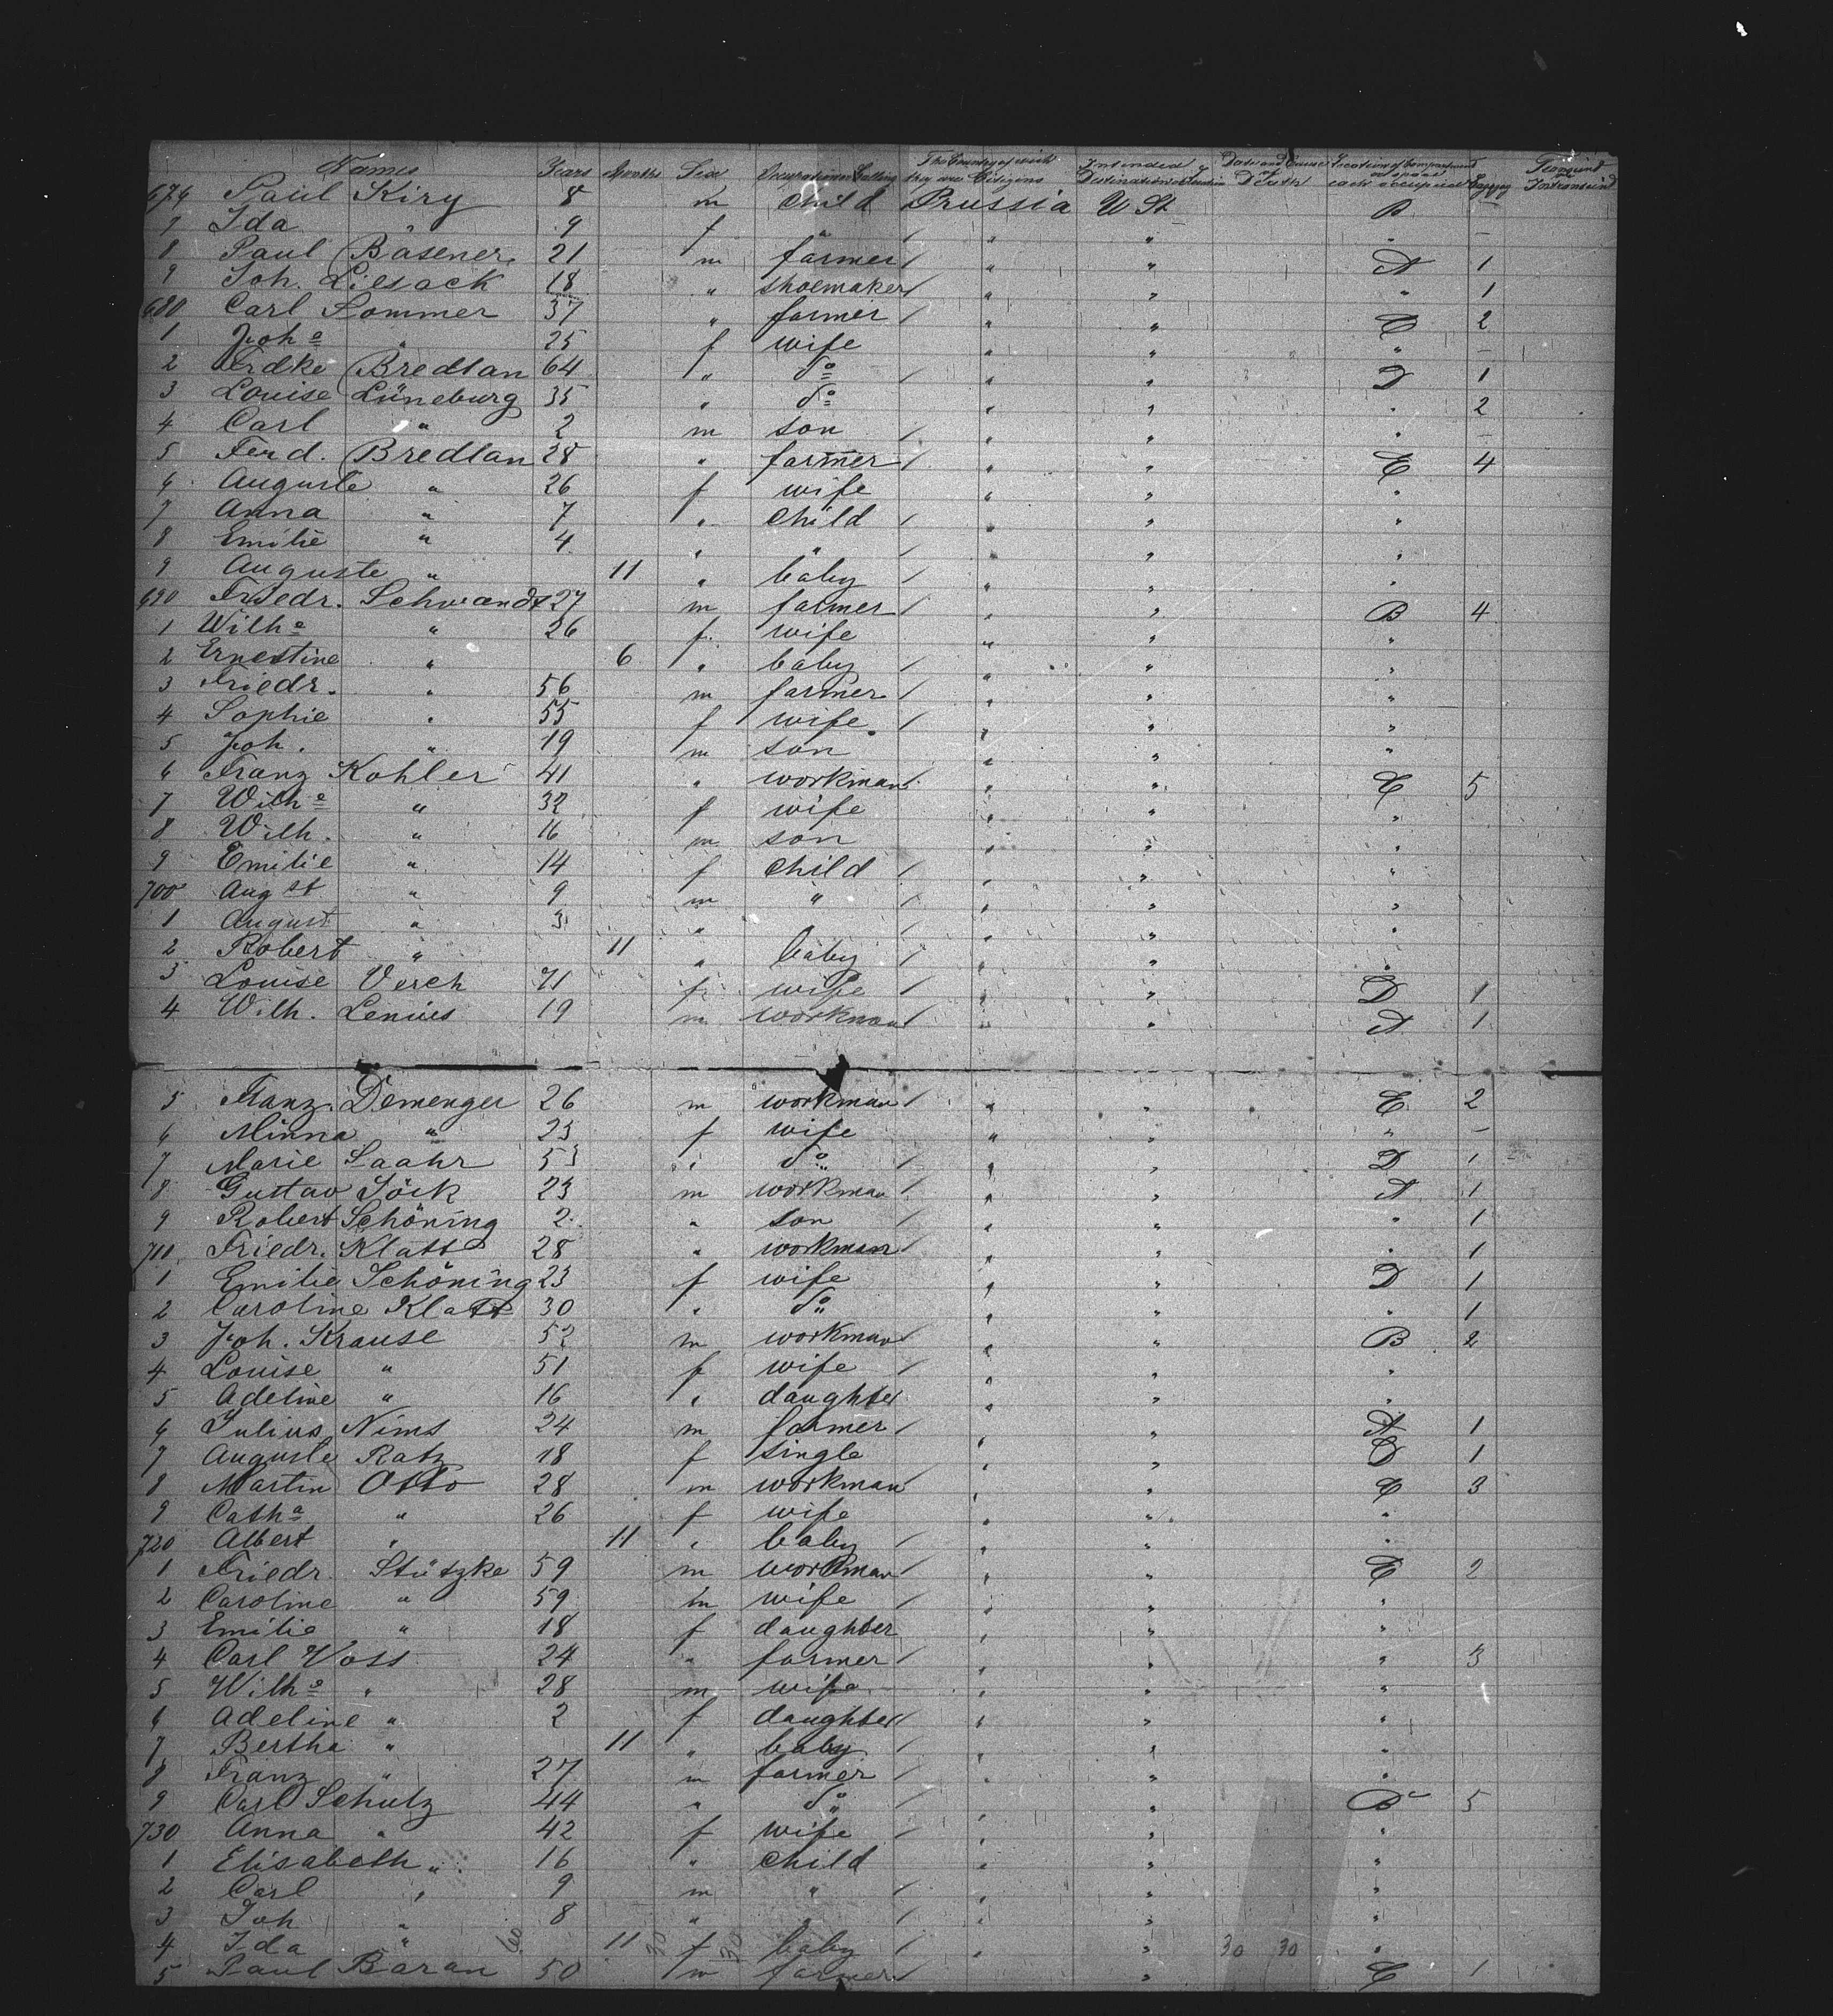 Names Years Months Sex Occupation or Calling The Country of which they are Citizens Intended Destination or Location Date and Cause of Death Location of Compartment or space each occupied Transient
676 Paul Kiry 8 m child Prussia U St B –
7 Ida " 9 f " " " " –
8 Paul Bäsener 21 m farmer " " A 1
9 Joh. Liesack 18 " shoemaker " " " 1
680 Carl Sommer 37 " farmer " " C 2
1 Johe " 25 f wife " " " –
2 Frdke Bredlan 64 " do " " D 1
3 Louise Lüneburg 35 " do " " " 2
4 Carl " 2 m son " " " –
5 Ferd. Bredlan 28 " farmer " " E 4
6 Auguste " 26 f wife " " "
7 Anna " 7 " child " " "
8 Emilie " 4 " " " " "
9 Auguste " 11 " baby " " "
690 Friedr. Schwandt 27 m farmer " " B 4
1 Wilhe " 26 f wife " " "
2 Ernestine " 6 " baby " " "
3 Friedr. " 56 m farmer " " "
4 Sophie " 55 f wife " " "
5 Joh. " 19 m son " " "
6 Franz Kohler 41 " workman " " C 5
7 Wilhe " 32 f wife " " "
8 Wilh. " 16 m son " " "
9 Emilie " 14 f child " " "
700 Augst " 9 m " " " "
1 August " 3 " " " "
2 Robert " 11 " baby " " "
3 Louise Verch 71 f wife " " D 1
4 Wilh. Lenius 19 m workman " " A 1
5 Franz Demenger 26 m workman " " E 2
6 Minna " 23 f wife " " " –
7 Marie Saahr 53 " do " " D 1
8 Gustav Töck 23 m workman " " A 1
9 Robert Schöning 2 " son " " " 1
710 Friedr. Klatt 28 " workman " " " 1
1 Emilie Schöning 23 f wife " " D 1
2 Caroline Klatt 30 " do " " " 1
3 Joh. Krause 52 m workman " " B 2
4 Louise " 51 f wife " " "
5 Adeline " 16 " daughter " " "
6 Julius Nims 24 m farmer " " A 1
7 Auguste Ratz 18 f single " " D 1
8 Martin Otto 28 m workman " " C 3
9 Catha " 26 f wife " " "
720 Albert " 11 " baby " " "
1 Friedr. Stützke 59 m workman " " C 2
2 Caroline " 59 m wife " " "
3 Emilie " 18 f daughter " " "
4 Carl Voss 24 " farmer " " " 3
5 Wilhe " 28 m wife " " "
6 Adeline " 2 f daughter " " "
7 Bertha " 11 " baby " " "
8 Franz " 27 m farmer " " "
9 Carl Schulz 44 " do " " B 5
730 Anna " 42 f wife " " "
1 Elisabeth " 16 " child " " "
2 Carl " 9 m " " " "
3 Joh " 8 " " " " "
4 Ida " 11 f baby " " 30 30 "
5 Paul Baran 50 m farmer " " C 1